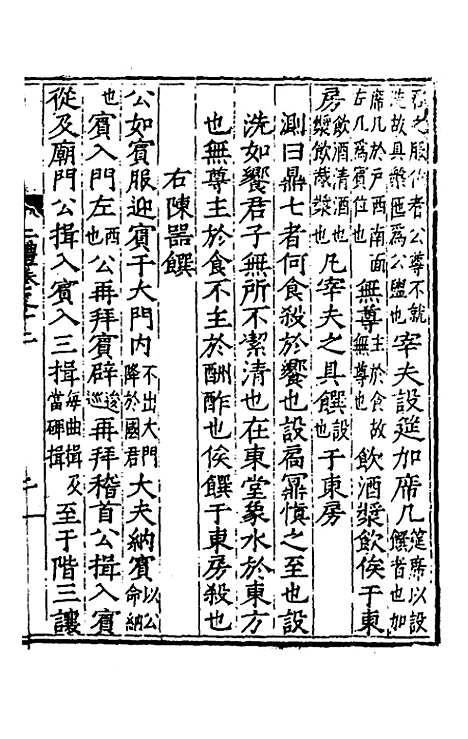 君之服飾者公尊不就洗故具槃匜爲公盥也宰夫設筵加席几筵席以設饌者也加
席几於戶西南面左几爲賓位也無尊主於食故無尊也飲酒漿飲俟于東
房飲酒清酒也漿飲酨漿也凡宰夫之具饌設于東房
測曰鼎七者何食殺於饗也設扃鼏慎之至也設
洗如饗君子無所不潔清也在東堂象水於東方
也無尊主於食不主於酬酢也俟饌于東房殺也
右陳器饌
公如賓服迎賓于大門內不出大門降於國君大夫納賓以公命納
也賓入門左西也公再拜賓辟逡巡再拜稽首公揖入賓
從及廟門公揖入賓入三揖每曲揖及當碑揖至于階三讓
二禮